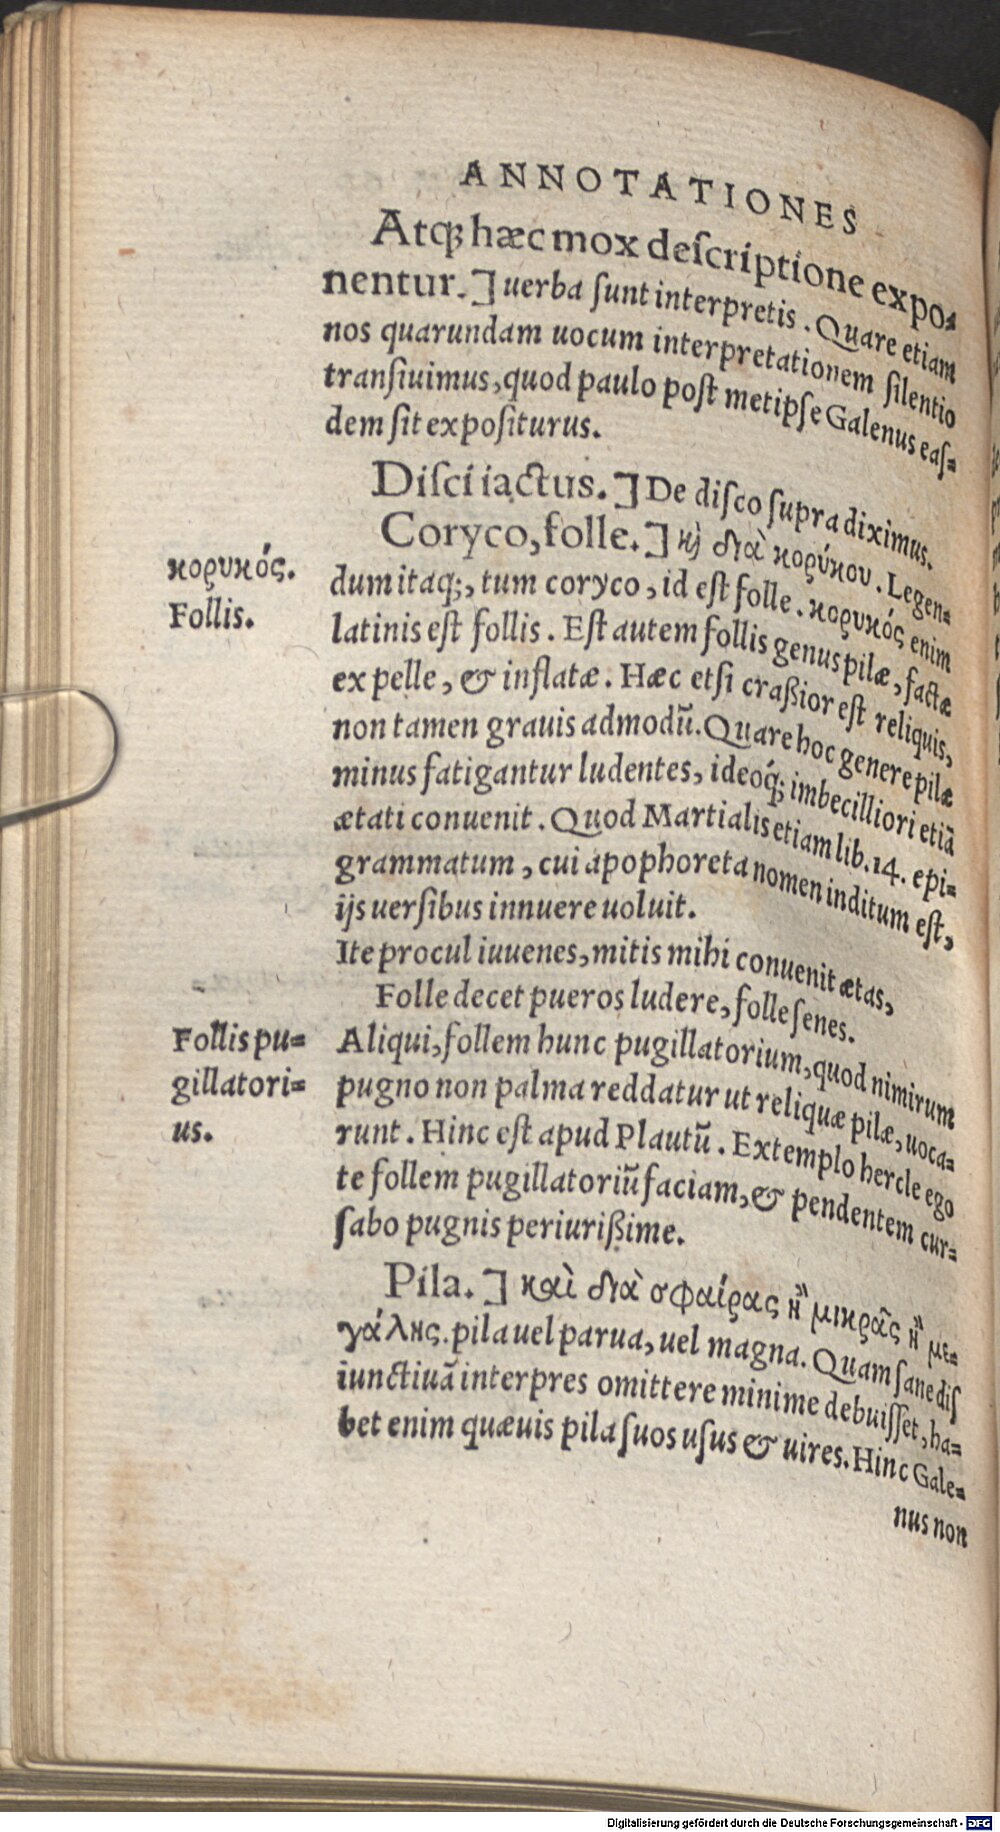 ANNOTATIONES
Atq; hæc mox deſcriptione expo⸗
nentur.] uerba ſunt interpretis. Quare etiam
nos quarundam uocum interpretationem ſilentio
tranſiuimus, quod paulo poſt metipſe Galenus eaſ⸗
dem ſit expoſiturus.
Diſci iactus.] De diſco ſupra diximus.
Coryco, folle.] κ̀ διὰ κορύκου. Legen⸗
κορυκός.
dum itaq;, tum coryco, id eſt folle. κορυκός enim
Follis.
latinis eſt follis. Eſt autem follis genus pilæ, factæ
ex pelle, & inflatæ. Hæc etſi craßior eſt reliquis,
non tamen grauis admodū. Quare hoc genere pilæ
minus fatigantur ludentes, ideoq́; imbecilliori etiā
ætati conuenit. Quod Martialis etiam lib. 14. epi⸗
grammatum, cui apophoreta nomen inditum eſt,
ijs uerſibus innuere uoluit.
Ite procul iuuenes, mitis mihi conuenit ætas,
Folle decet pueros ludere, folle ſenes.
Follis pu⸗
Aliqui, follem hunc pugillatorium, quod nimirum
gillatori⸗
pugno non palma reddatur ut reliquæ pilæ, uoca⸗
us.
runt. Hinc eſt apud Plautū. Extemplo hercle ego
te follem pugillatoriū faciam, & pendentem cur⸗
ſabo pugnis periurißime.
Pila.] καὶ διὰ σφαίρας ἢ μικρᾶς ἢ με⸗
γάλης. pila uel parua, uel magna. Quam ſane diſ
iunctiuā interpres omittere minime debuiſſet, ha⸗
bet enim quæuis pila ſuos uſus & uires. Hinc Gale⸗
nus non
Digitalisierung gefördert durch die Deutsche Forschungsgemeinschaft - DFG